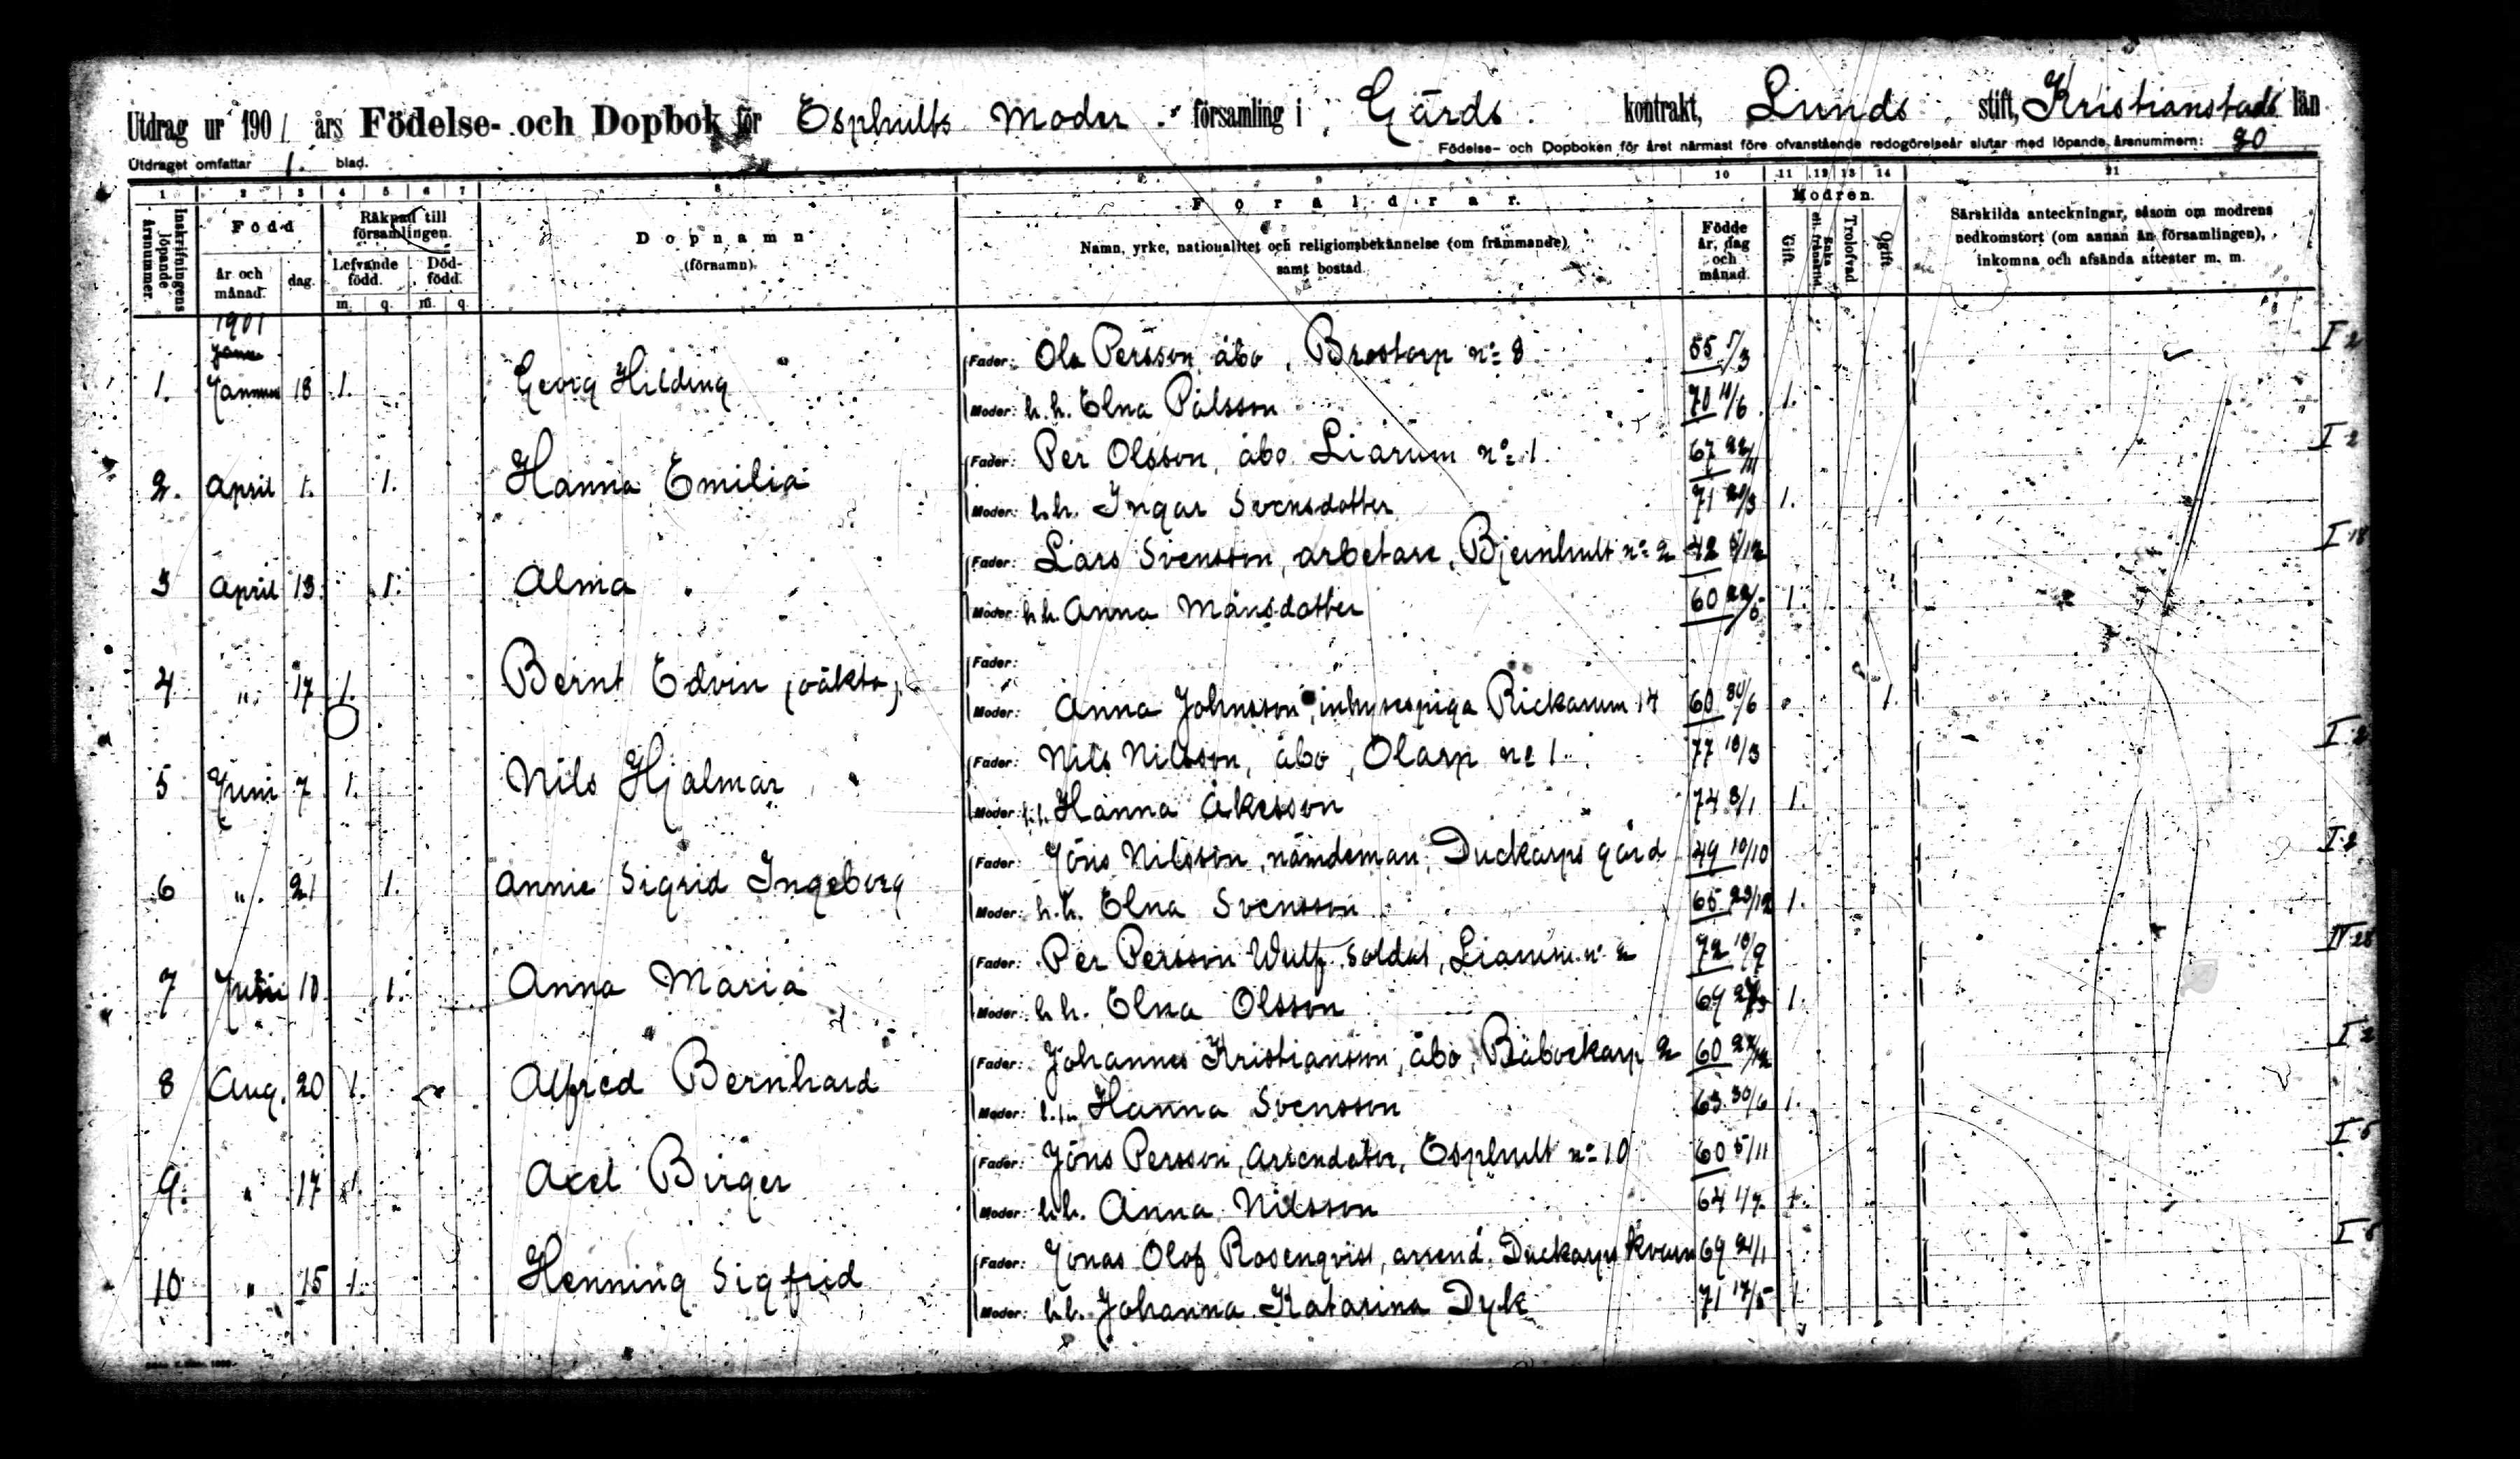 Utdrag ur 1901 års Födelse- och Dopbok för Esphults Moder församling i Gärds kontrakt, Lunds stift, Kristianstads län
Utdraget omfattar 1. blad.
Födelse- och Dopboken för året närmast före ofvanstående redogörelseår slutar med löpande årsnummern: 20
1 2 3 4 5 6 7 8 9 10 11 12 13 14 21
Inskrifningens löpande årsnummer.
Född
år och månad.
dag.
Räknad till församlingen.
Lefvande född.
Död-född.
m. q. m. q.
Dopnamn
(förnamn).
Föräldrar.
Namn, yrke, nationalitet och religionsbekännelse (om främmande), samt bostad.
Födde år, dag och månad.
Modren.
Gift
Trolofvad
Ogift
Särskilda anteckningar, såsom om modrens
nedkomstort (om annan än församlingen),
inkomna och afsända attester m. m.
1901
Fader: Ola Persson åbo, Brostorp nº 8 55 5/3 I 2
1. Januari 18 1. Georg Hilding
Moder: h. h. Elna Pålsson 70 11/6 1.
Fader: Per Olsson, åbo Liarum nº 1. 67 22/11 I 2
2. April 1. 1. Hanna Emilia
Moder: h. h. Ingar Svensdotter 71 1.
Fader: Lars Svensson, arbetare, Bjernhult nº 2 42 /12 I 18
3 April 13. 1. Alma
Moder: h. h. Anna Månsdotter 60 1.
Fader:
4 ". 17 1. Bernt Edvin (oäkta)
Moder: Anna Johnsson, inhysespiga Rickarum 14 60 30/6 1.
Fader: Nils Nilsson, åbo, Olarp nº 1. 77 10/3 I 2
5 Juni 7 1. Nils Hjalmar
Moder: h. h. Hanna Åkesson 74 8/1 1.
Fader: Jöns Nilsson, nämdeman, Duckarps gård 49 10/10 I 2
6 ". 21 1. Annie Sigrid Ingeborg
Moder: h. h. Elna Svensson 65 23/12 1.
Fader: Per Persson Wulf, soldat, Liarum nº 2 72 10/9
7 10. 1. Anna Maria
Moder: h. h. Elna Olsson 69 1.
Fader: Johannes Kristiansson, åbo, 2 60 27/12 I 2
8 Aug. 20 1. Alfred Bernhard
Moder: h. h. Hanna Svensson 63 30/6 1.
Fader: Jöns Persson, Arrendator, Esphult nº 10 60 5/11
9. " 17 1. Axel Birger
Moder: h. h. Anna Nilsson 64 1/7. 1.
Fader: Jonas Olof Rosenqvist, arrend. Duckarps kvarn 69 21/1
10 " 15 1. Henning Sigfrid
Moder: h. h. Johanna Katarina Dyk 71 17/5 1